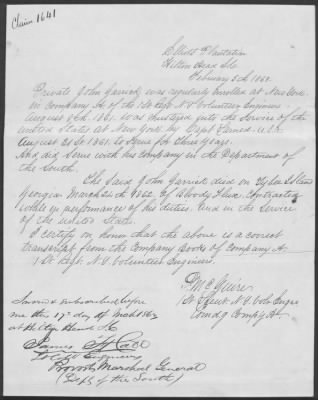 Claim 1641
Elliott Plantation
Hilton Head S.C
February 5th 1863.
Private John Garrick was regularly Enrolled at New York
in Company H. of the 1st Regt N.Y. Volunteer Engineers
August 1861. was Mustered into the Service of the
United States at New York by Capt U.S.A.
August 21st 1861. to Serve for three Years.
And did Serve with his Company in the Department of
the South.
The Said John Garrick died on Tybee Island
Georgia March 24th 1862. of Bloody Flux. Contracted
while in performance of his duties. and in the Service
of the United States.
I certify on honor that the above is a correct
transcript from the Company Books of Company H.
1st Regt. N.Y. Volunteer Engineers.
P. McGuire
1st Lieut. N.Y. Vols Engrs
Comdg Compy H.
Sworn & subscribed before
me this 17th day of March 1863
at Hilton Head S.C
James F. Hall
Lt Col Engineers
Provost Marshal General
(Dept of the South)